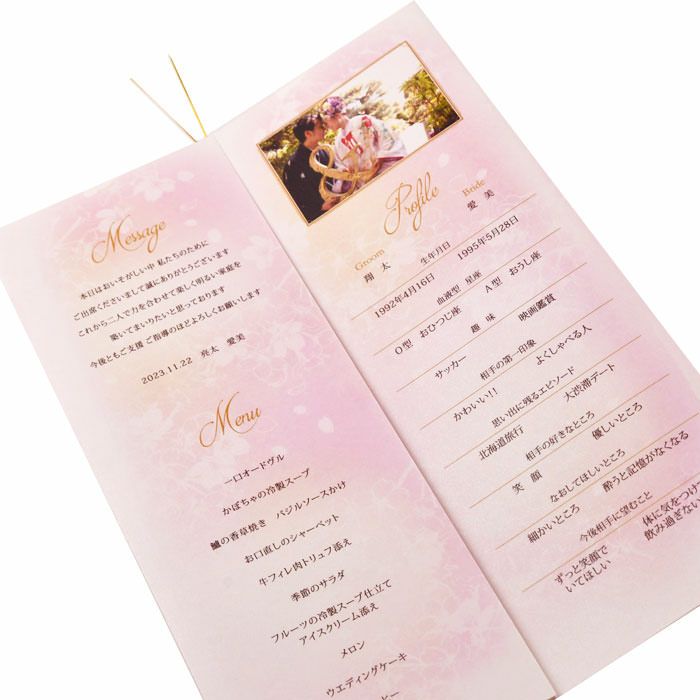 Message
本日はおいそがしい中 私たちのために
ご出席くださいまして誠にありがとうございます
これから二人で力を合わせて楽しく明るい家庭を
築いてまいりたいと思っております
今後ともご支援 ご指導のほどよろしくお願いします
2023.11.22 亮太 愛美
Menu
一口オードヴル
かぼちゃの冷製スープ
鱸の香草焼き バジルソースかけ
お口直しのシャーベット
牛フィレ肉トリュフ添え
季節のサラダ
フルーツの冷製スープ仕立て
アイスクリーム添え
メロン
ウエディングケーキ
Profile
Groom Bride
翔 太 愛 美
生年月日
1992年4月16日 1995年5月28日
血液型 星座
O型 おひつじ座 A型 おうし座
趣 味
サッカー 映画鑑賞
相手の第一印象
かわいい!! よくしゃべる人
思い出に残るエピソード
北海道旅行 大渋滞デート
相手の好きなところ
笑 顔 優しいところ
なおしてほしいところ
細かいところ 酔うと記憶がなくなる
今後相手に望むこと
ずっと笑顔で 体に気をつけて
いてほしい 飲み過ぎない